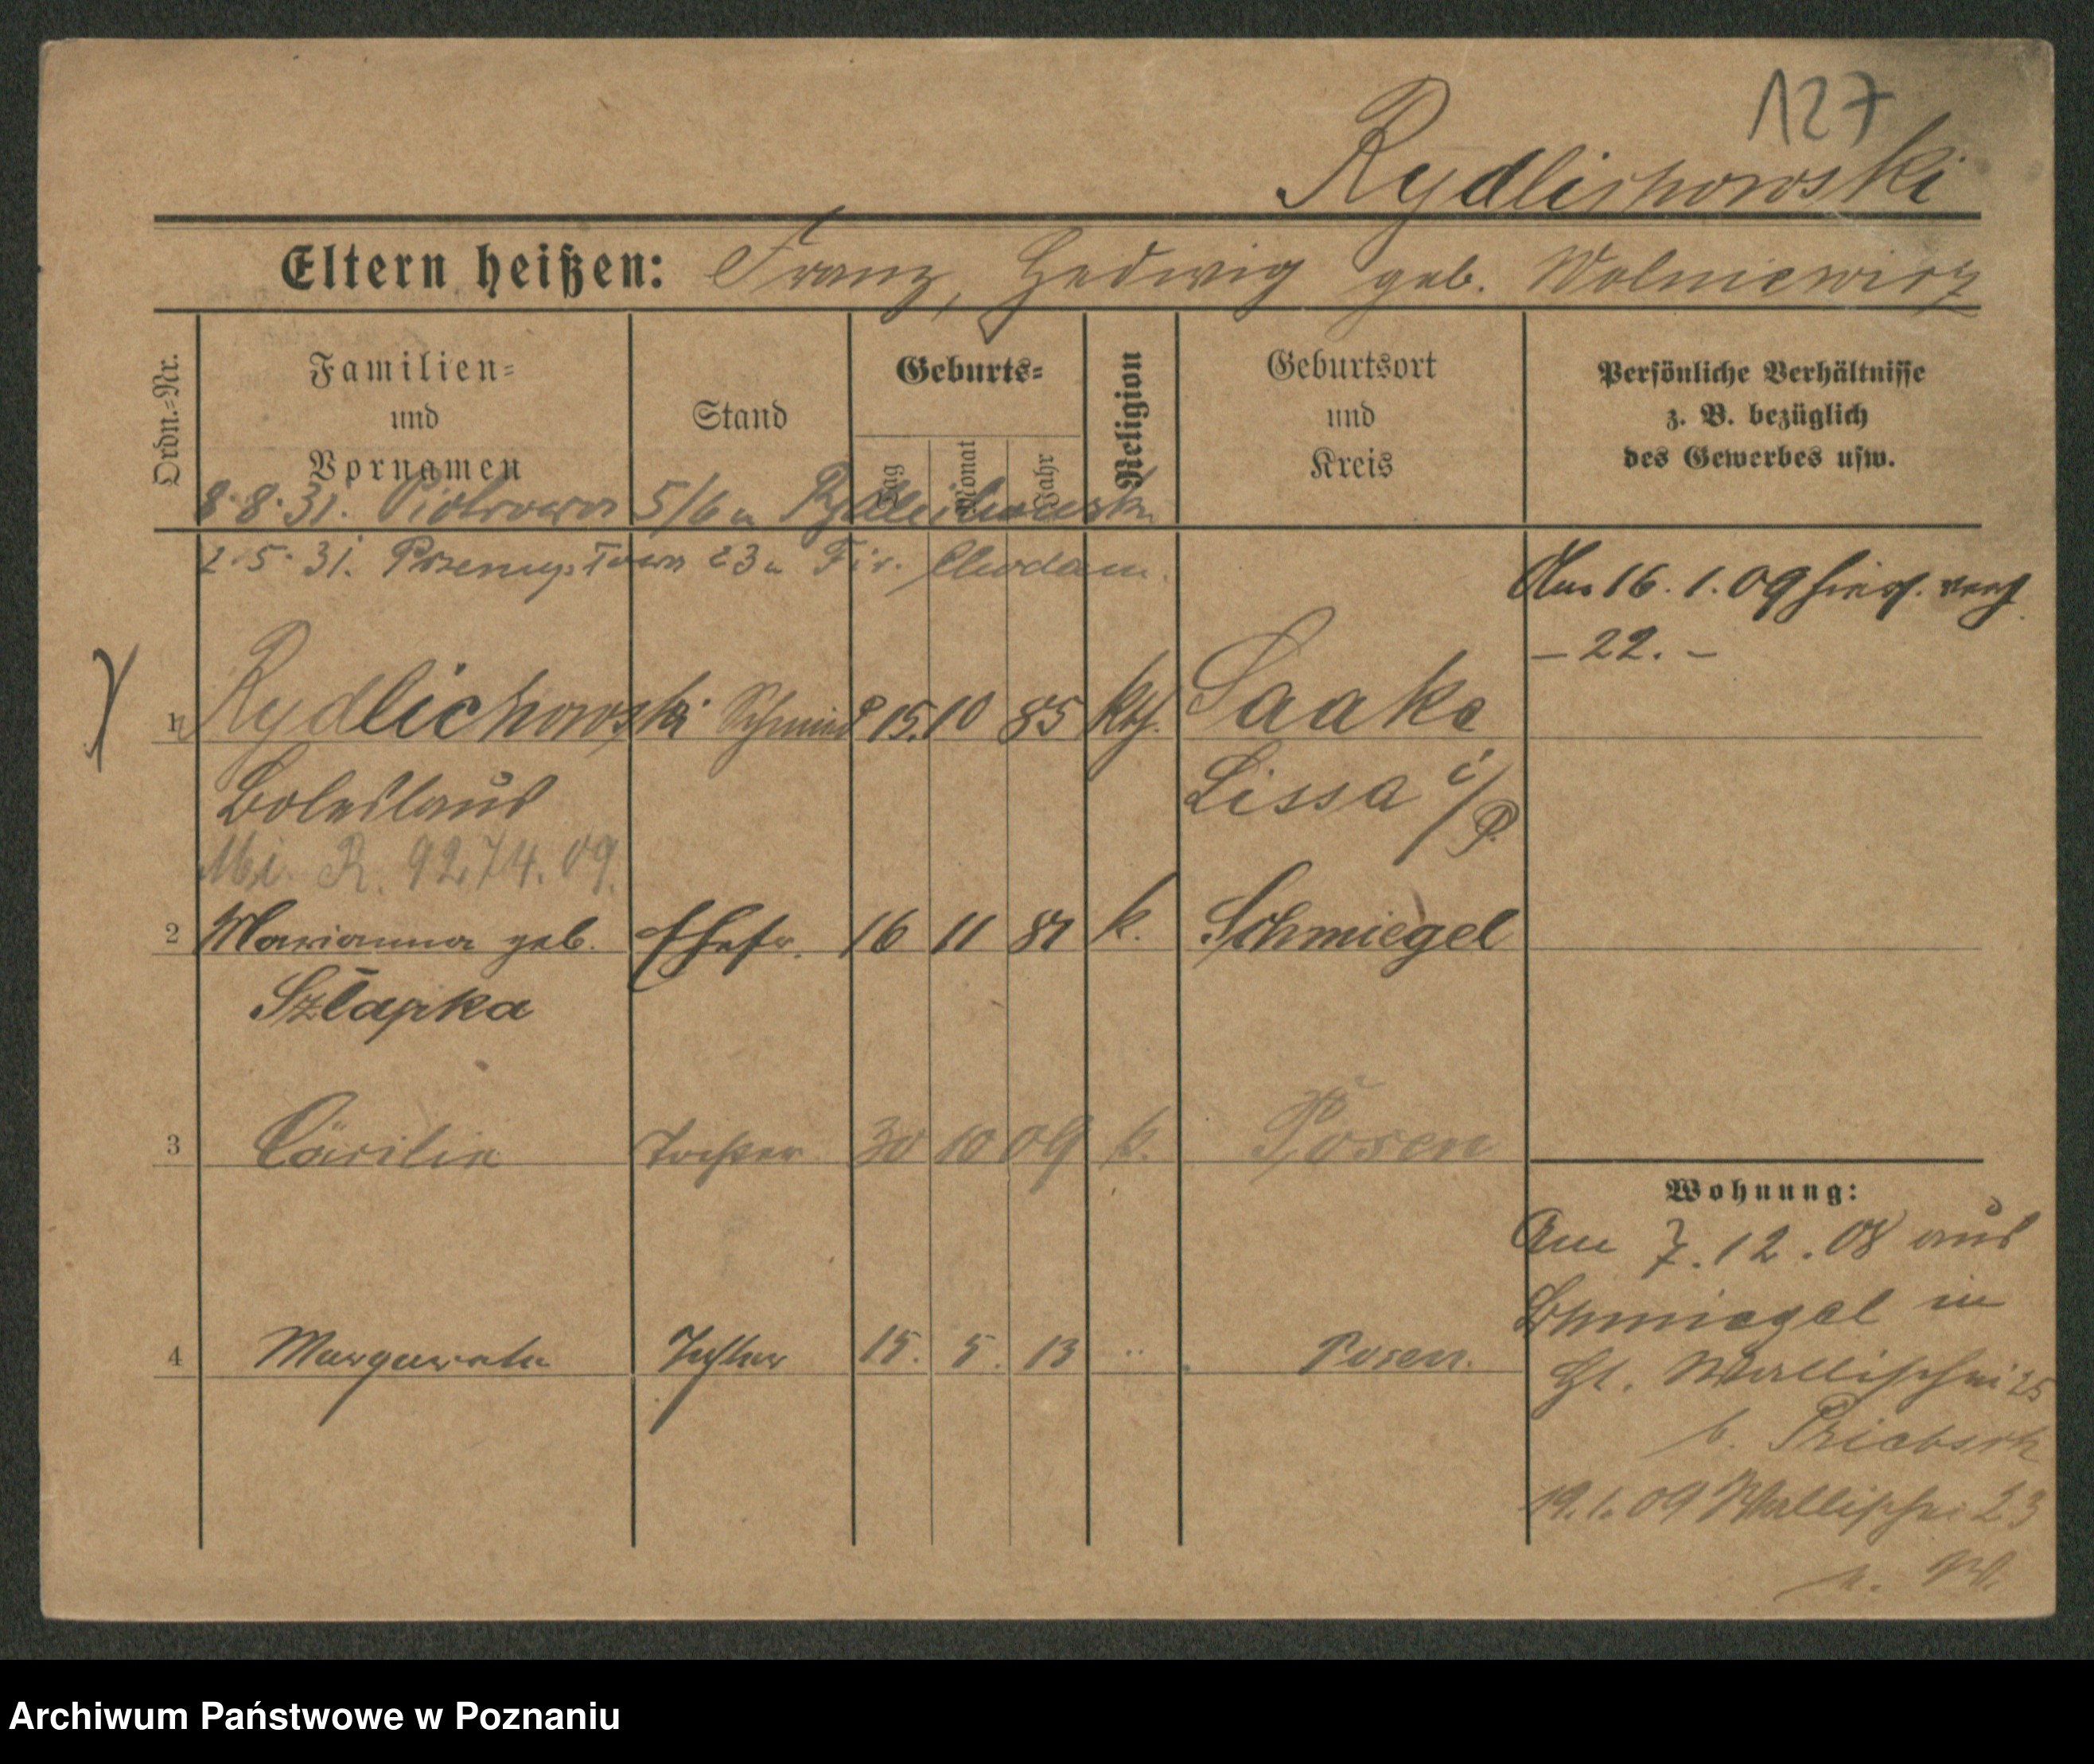 127
Rydlichowski
Eltern heißen: Franz, Hedwig geb. Wolniewicz
Ordn.-Nr.
Familien-
und
Vornamen
Stand
Geburts-
Tag
Monat
Jahr
Religion
Geburtsort
und
Kreis
Persönliche Verhältnisse
z. B. bezüglich
des Gewerbes usw.
8.8.31. Piotrowo 5/6 u Rydlichowski
2.5.31. 23 u
Am 16.1.09
– 22. –
1 Rydlichowski Schmied 15. 10 85 kth. Saake
Boleslaus Lissa i/P.
R. 9274.09.
2 Marianna geb. Ehefr. 16 11 k. Schmiegel
Szlapka
3 Cäcilie Tochter 30 10 09 k. Posen
4 Margareta Tochter 15. 5. 13 " Posen.
Wohnung:
Am 7.12.08 aus
Schmiegel in
Wallischei 25
b. Priebsch
19.1.09 Wallischei 23
Archiwum Państwowe w Poznaniu